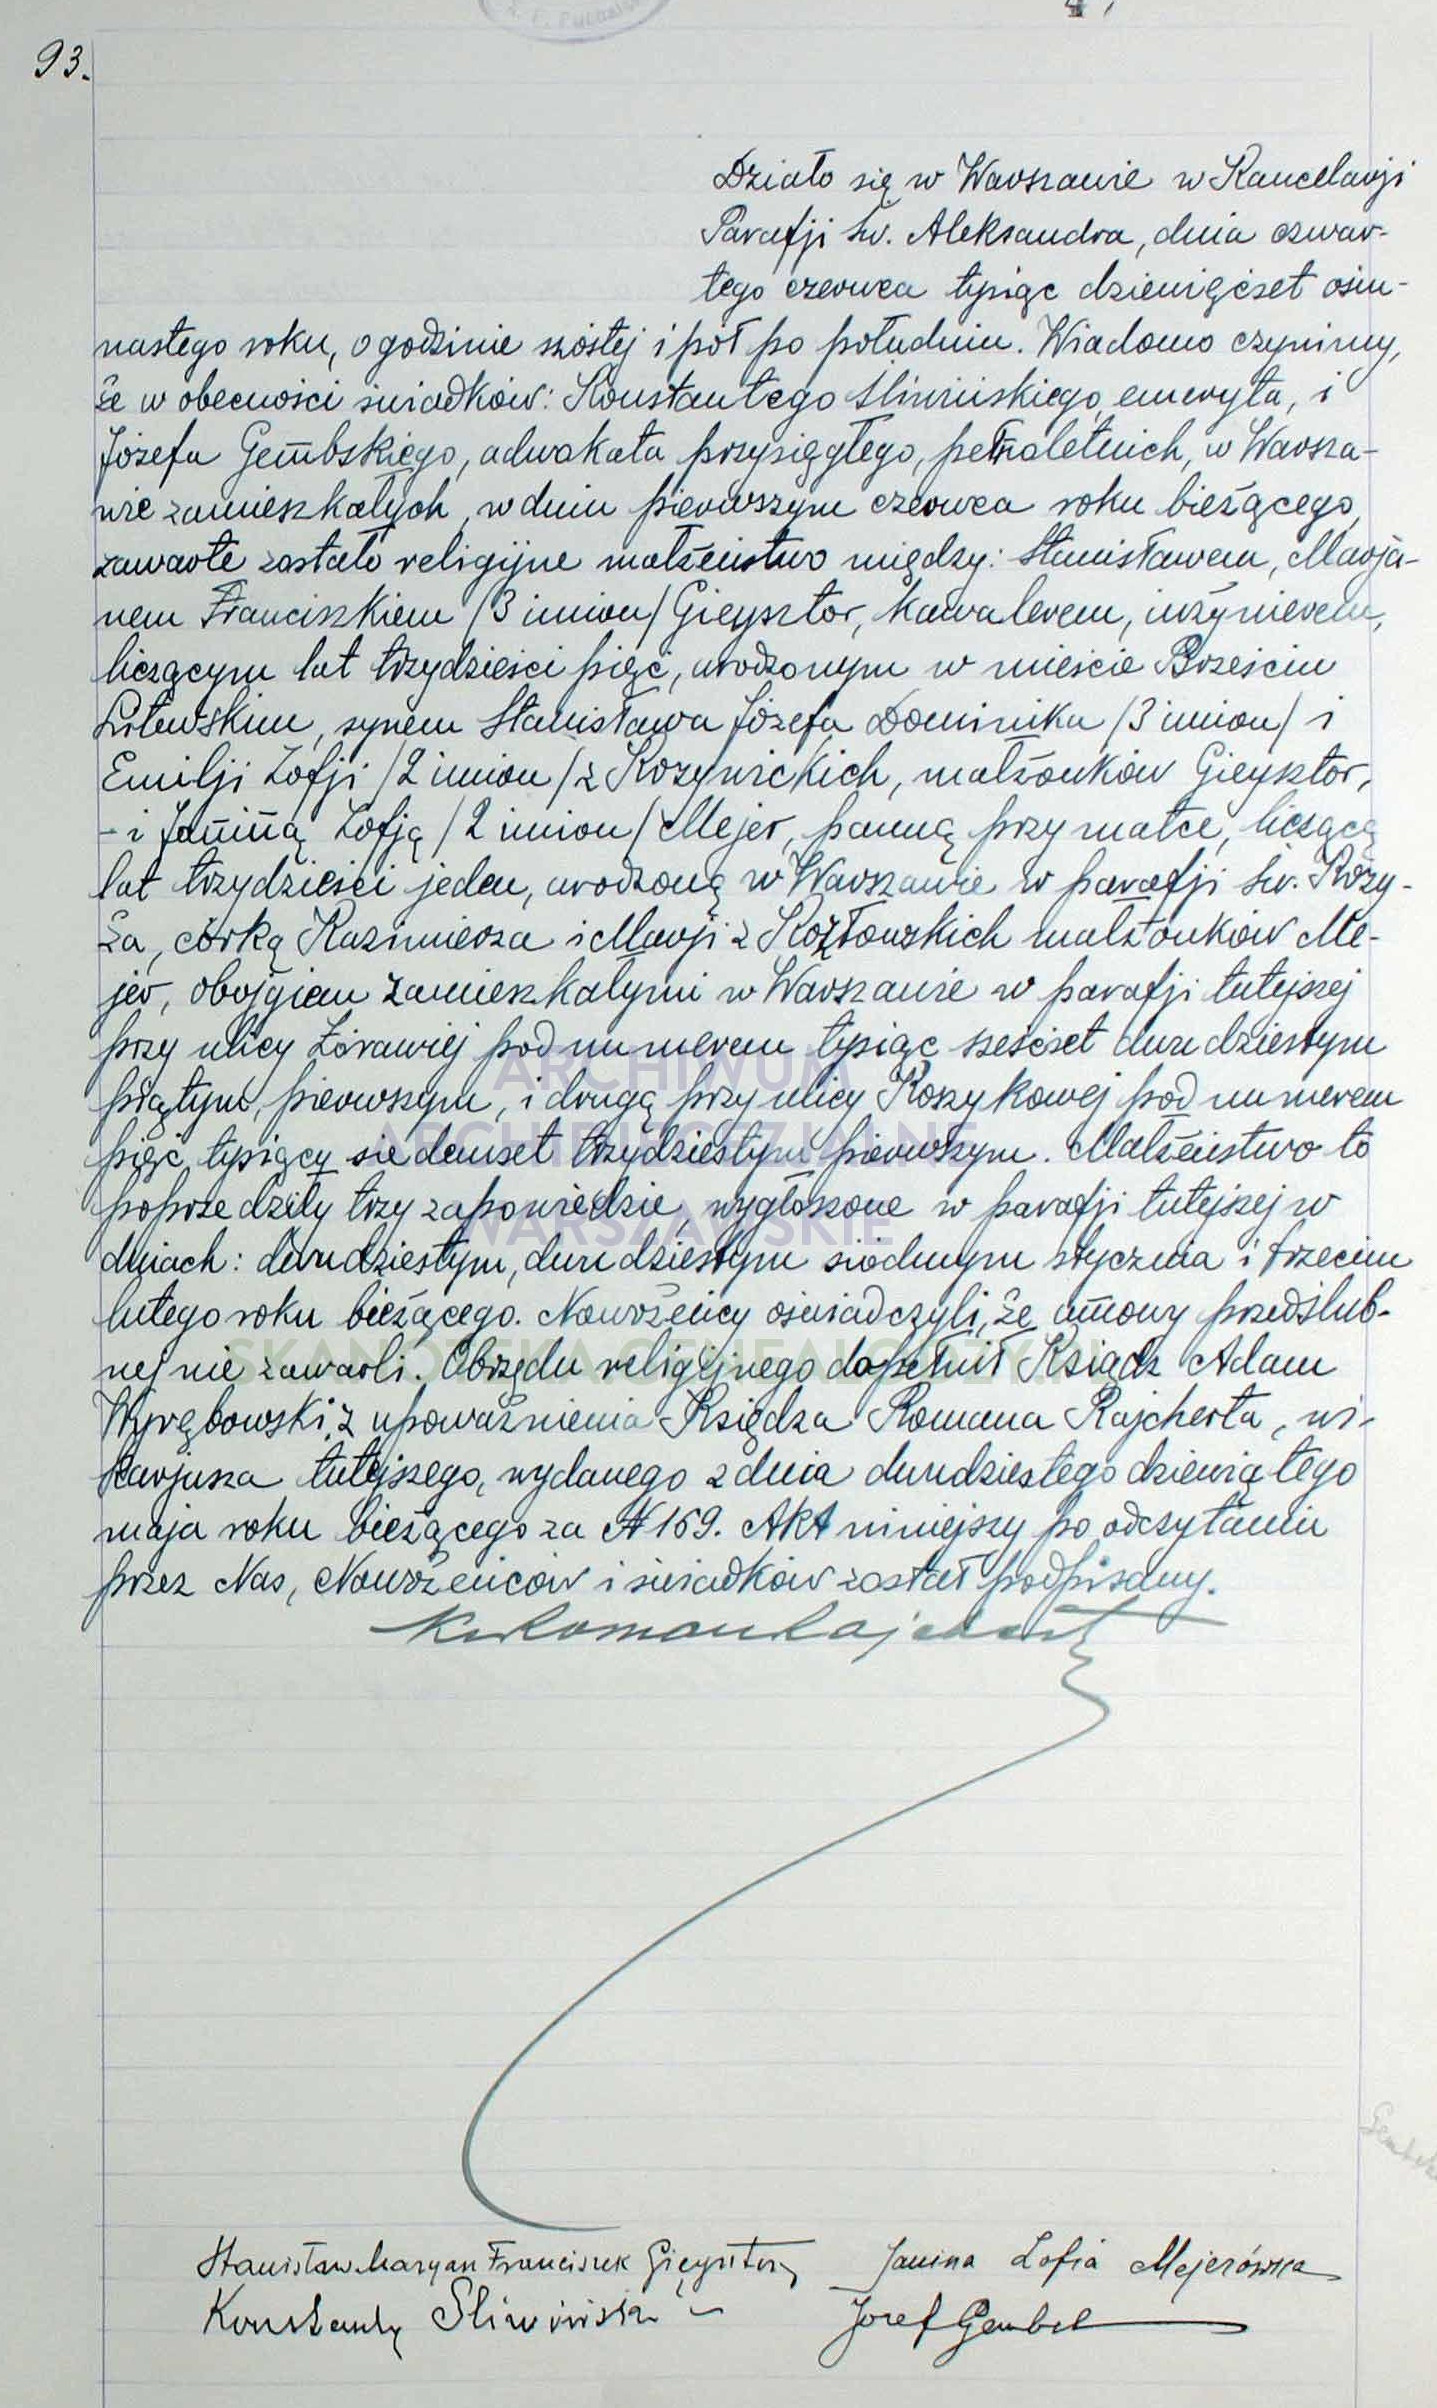 93.
Działo się w Warszawie w Kancelarji
Parafji św. Aleksandra, dnia czwar-
tego czerwca tysiąc dziewięćset ośm-
nastego roku, o godzinie szóstej i pół po południu. Wiadomo czynimy,
że w obecności świadków: Konstantego Śliwińskiego, emeryta, i
Józefa Gembskiego, adwokata przysięgłego, pełnoletnich, w Warsza-
wie zamieszkałych, w dniu pierwszym czerwca roku bieżącego,
zawarte zostało religijne małżeństwo między: Stanisławem, Marja-
nem Franciszkiem /3 imion/ Gieysztor, kawalerem, inżynierem,
liczącym lat trzydzieści pięć, urodzonym w mieście Brześciu
Litewskim, synem Stanisława Józefa Dominika /3 imion/ i
Emilji Zofji /2 imion/ z Kozywickich, małżonków Gieysztor,
- i Janiną Zofją /2 imion/ Mejer, panną przy matce, liczącą
lat trzydzieści jeden, urodzoną w Warszawie w parafji św. Krzy-
ża, córką Kazimierza i Marji z Kozłowskich małżonków Me-
jer, obojgiem zamieszkałymi w Warszawie w parafji tutejszej
przy ulicy Żórawiej pod numerem tysiąc sześćset dwudziestym
piątym, pierwszym, i drugą przy ulicy Koszykowej pod numerem
pięć tysięcy siedemset trzydziestym pierwszym. Małżeństwo to
poprzedziły trzy zapowiedzie, wygłoszone w parafji tutejszej w
dniach: dwudziestym, dwudziestym siódmym stycznia i trzecim
lutego roku bieżącego. Nowożeńcy oświadczyli, że umowy przedślub-
nej nie zawarli. Obrzędu religijnego dopełnił Ksiądz Adam
Wyrębowski, z upoważnienia Księdza Romana Rajcherta, wi-
karjusza tutejszego, wydanego z dnia dwudziestego dziewiątego
maja roku bieżącego za № 169. Akt niniejszy po odczytaniu
przez Nas, Nowożeńców i świadków został podpisany.
Ks Roman Rajchert
Stanisław Maryan Franciszek Gieysztor Janina Zofia Mejerówna
Konstanty Śliwiński Józef Gembski
ARCHIWUM
ARCHIDIECEZJALNE
WARSZAWSKIE